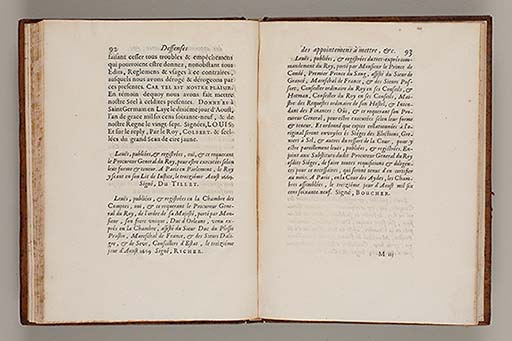 92 Deffenses
faisant cesser tous troubles & empéchemens
qui pourroient estre donnez, nonobstant tous
Edits, Reglemens & vsages à ce contraires,
ausquels nous avons dérogé & dérogeons par
ces presentes. CAR TEL EST NOSTRE PLAISIR.
En témoin dequoy nous avons fait mettre
nostre Seel à cesdites presentes. DONNÉES à
Saint Germain en Laye le dixiéme jour d'Aoust,
l'an de grace mil six cens soixante-neuf, & de
nostre Regne le vingt-sept. Signées, LOUIS:
Et sur le reply, Par le Roy, COLBERT. & seel-
lées du grand Sceau de cire jaune.
Leuës, publiées, & registrées, oui, & ce requerant
le Procureur General du Roy, pour estre executées selon
leur forme & teneur. A Paris en Parlement, le Roy
y seant en son Lit de Justice, le treiziéme Aoust 1669.
Signé, DU TILLET.
Leuës, publiées, & registrées en la Chambre des
Comptes, oui, & ce requerant le Procureur Gene-
ral du Roy, de l'ordre de sa Majesté, porté par Mon-
sieur, son frere unique, Duc d'Orleans, venu ex-
prés en la Chambre, assisté du Sieur Duc du Plessis
Praslin, Mareschal de France, & des Sieurs Dalig-
re, & de Seve, Conseillers d'Estat, le treiziéme
jour d'Aoust 1669 Signé, RICHER.
des appointemens à mettre, &c. 93
Leuës, publiées, & registrées du tres-exprés com-
mandement du Roy, porté par Monsieur le Prince de
Condé, Premier Prince du Sang, assisté du Sieur de
Grancé, Mareschal de France, & des Sieurs Pus-
sort, Conseiller ordinaire du Roy en ses Conseils, &
Hotman, Conseiller du Roy en ses Conseils, Mai-
stre des Requestes ordinaire de son Hostel, & Inten-
dant des Finances: Oüi, & ce requerant son Pro-
cureur General, pour estre executées selon leur forme
& teneur. Et ordonné que copies collationnées à l'o-
riginal seront envoyées és Sieges des Elections, Gre-
niers à Sel, & autres du ressort de la Cour, pour y
estre pareillement leuës, publiées, & registrées. En-
joint aux Substituts dudit Procureur General du Roy
esdits Sieges, de faire toutes requisitions & diligen-
ces pour ce necessaires, qui seront tenus d'en certifier
au mois. A Paris, en la Cour des Aydes, les Cham-
bres assemblées, le treiziéme jour d'Aoust mil six
cens soixante-neuf. Signé, BOUCHER.
M iij